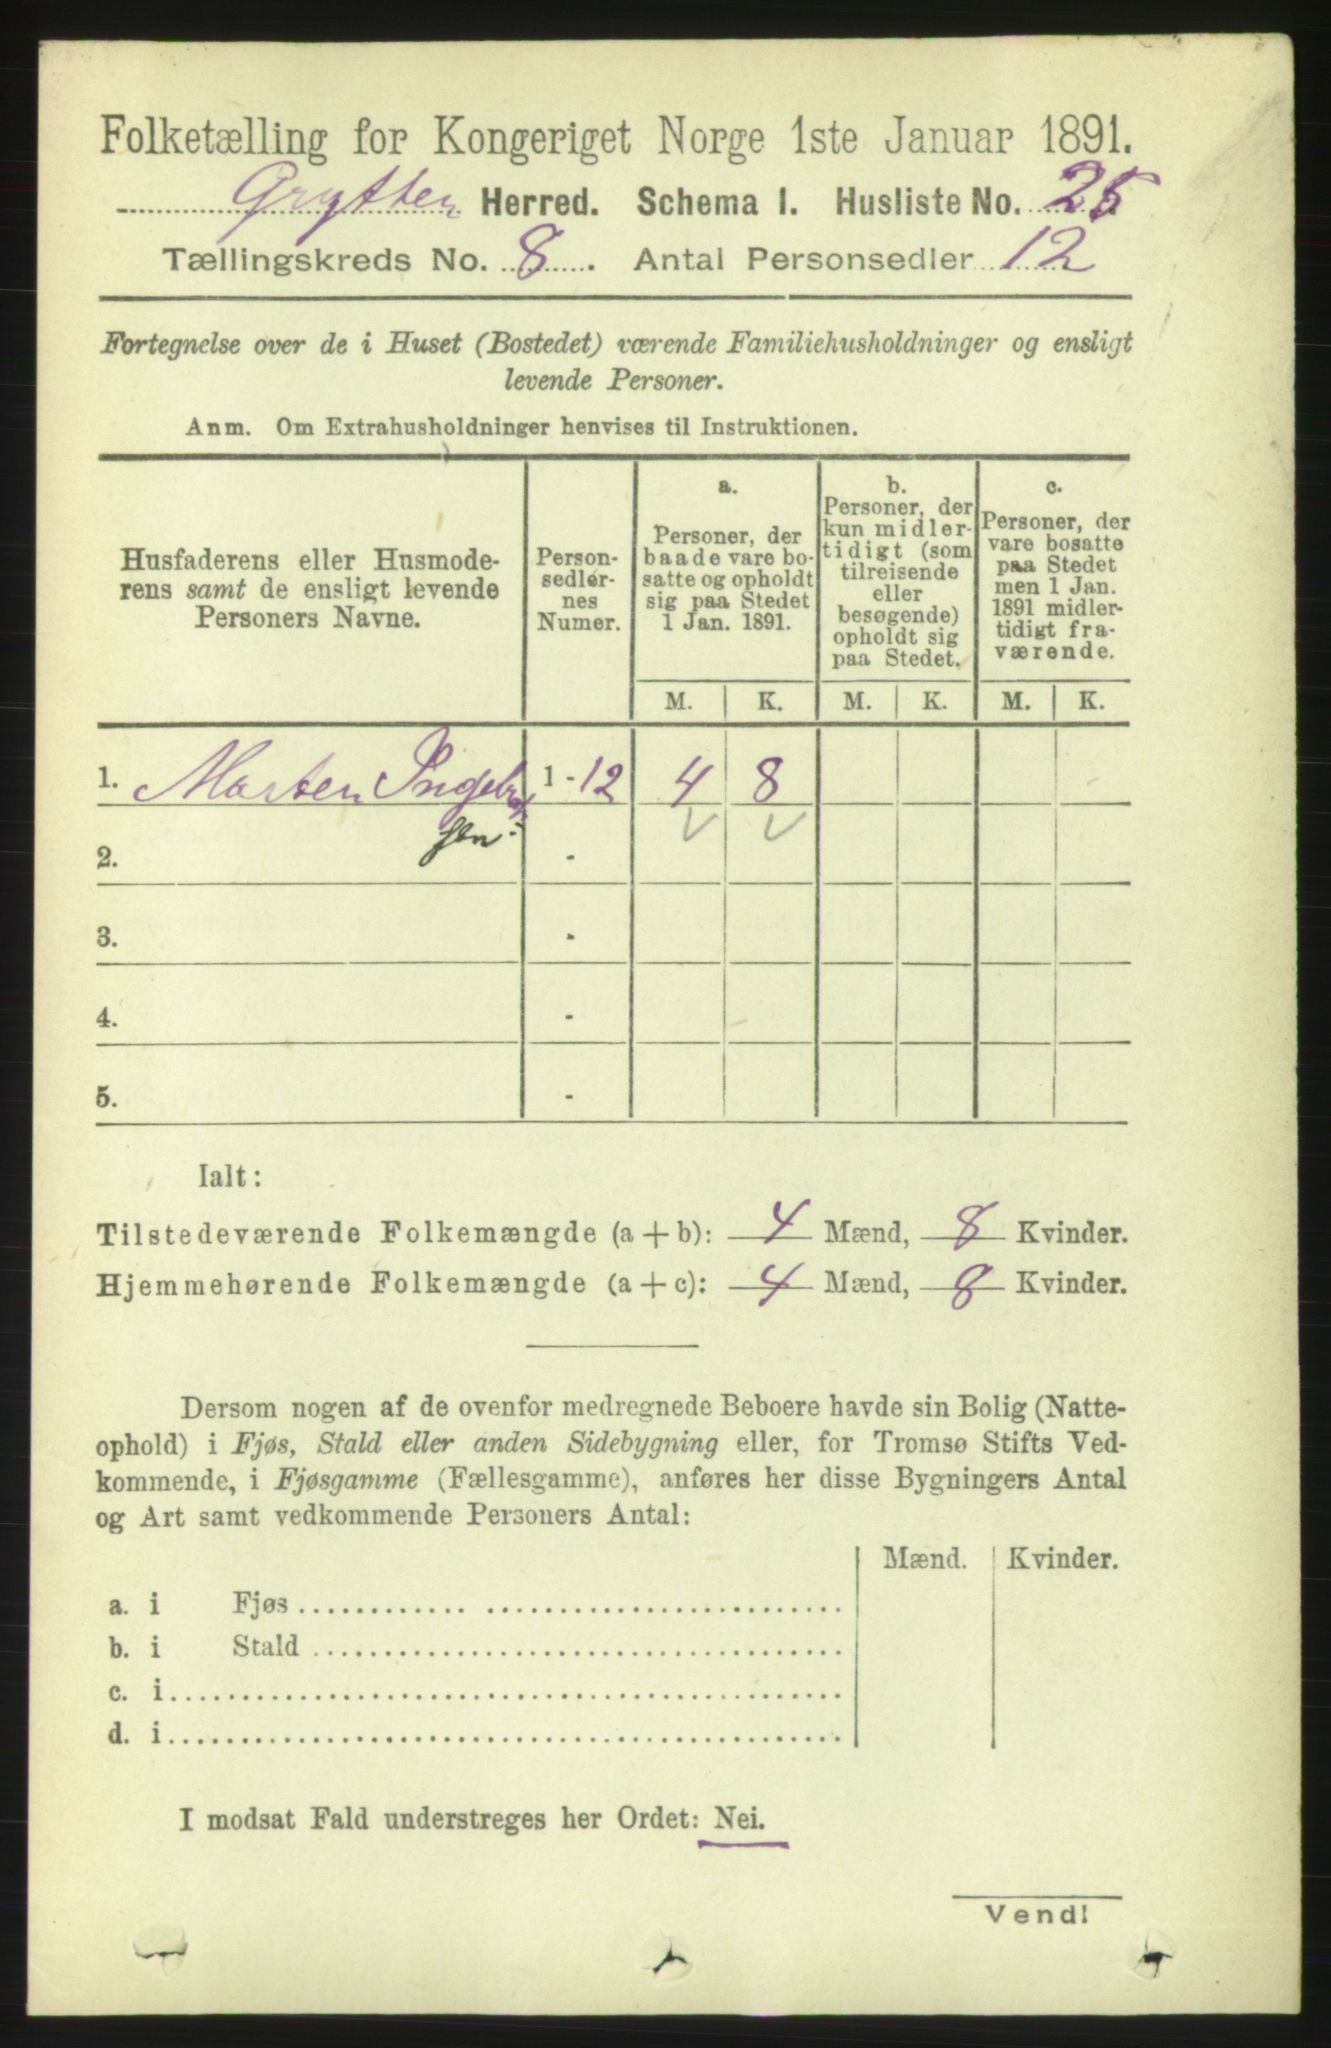 Folketælling for Kongeriget Norge 1ste Januar 1891.
Grytten Herred. Schema I. Husliste No. 25
Tællingskreds No. 8. Antal Personsedler 12
Fortegnelse over de i Huset (Bostedet) værende Familiehusholdninger og ensligt
levende Personer.
Anm. Om Extrahusholdninger henvises til Instruktionen.
Husfaderens eller Husmode-
rens samt de ensligt levende
Personers Navne.
Person-
sedler-
nes
Numer.
a.
Personer, der
baade vare bo-
satte og opholdt
sig paa Stedet
1 Jan. 1891.
b.
Personer, der
kun midler-
tidigt (som
tilreisende
eller
besøgende)
opholdt sig
paa Stedet.
c.
Personer, der
vare bosatte
paa Stedet
men 1 Jan.
1891 midler-
tidigt fra-
værende.
M. K. M. K. M. K.
1. Marten Ingebrigt 1 - 12 4 8
sen
2. -
3. -
4. -
5. -
Ialt:
Tilstedeværende Folkemængde (a + b): 4 Mænd, 8 Kvinder.
Hjemmehørende Folkemængde (a + c): 4 Mænd, 8 Kvinder.
Dersom nogen af de ovenfor medregnede Beboere havde sin Bolig (Natte-
ophold) i Fjøs, Stald eller anden Sidebygning eller, for Tromsø Stifts Ved-
kommende, i Fjøsgamme (Fællesgamme), anføres her disse Bygningers Antal
og Art samt vedkommende Personers Antal:
Mænd. Kvinder.
a. i Fjøs
b. i Stald
c. i
d. i
I modsat Fald understreges her Ordet: Nei.
Vend!